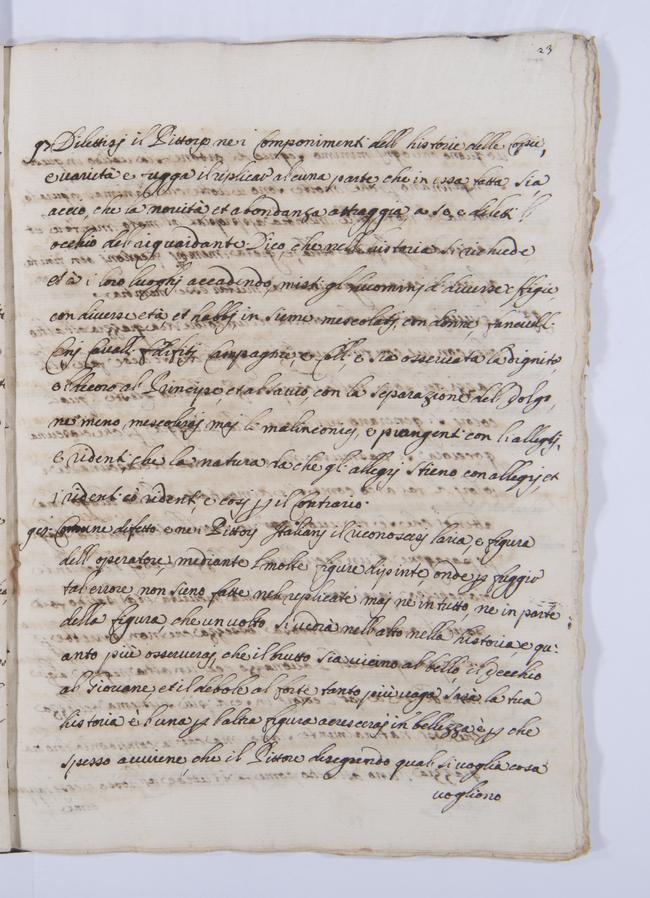 23
97 Dilettisi il Pittore ne i componimenti dell historie delle copie,
e varietà e fugga il replicar alcuna parte che in essa fatta sia
acciò, che la novità et abondanza attraggia a se, e diletti l
occhio del riguardante Dico che nell historia si richiede
et à i loro luoghi accadendo, misti gl huomini di diverse effigie,
con diverse età et habiti in sieme mescolati con donne, fanciulli
Cani Cavalli Edifitij Campagnie, e Colli, e sia osservata la dignità,
e decoro al Principe et al savio con la separazione del Volgo,
ne meno, mescolerai mai li malinconici, e piangenti con li allegri,
e ridenti che la natura da che gli allegri stieno con allegri, et
i ridenti cò ridenti, e cosi p il contrario.
Comune difetto e ne i Pittori Italiani il riconoscersi l aria, e figura
dell operatore, mediante le molte figure dipinte onde p fuggir
tal errore non sieno fatte ne le replicate mai ne in tutto, ne in parte
della figura, che un volto si vedrà nell alto nella historia e qu:
anto più osserverai che il brutto sia vicino al bello, il Vecchio
al Giovane, et il debole al forte tanto più vaga sarà la tua
historia è l una p l altra figura accrescerai in bellezza è p che
spesso avviene, che il Pittore disegnando qual si voglia cosa
vogliono